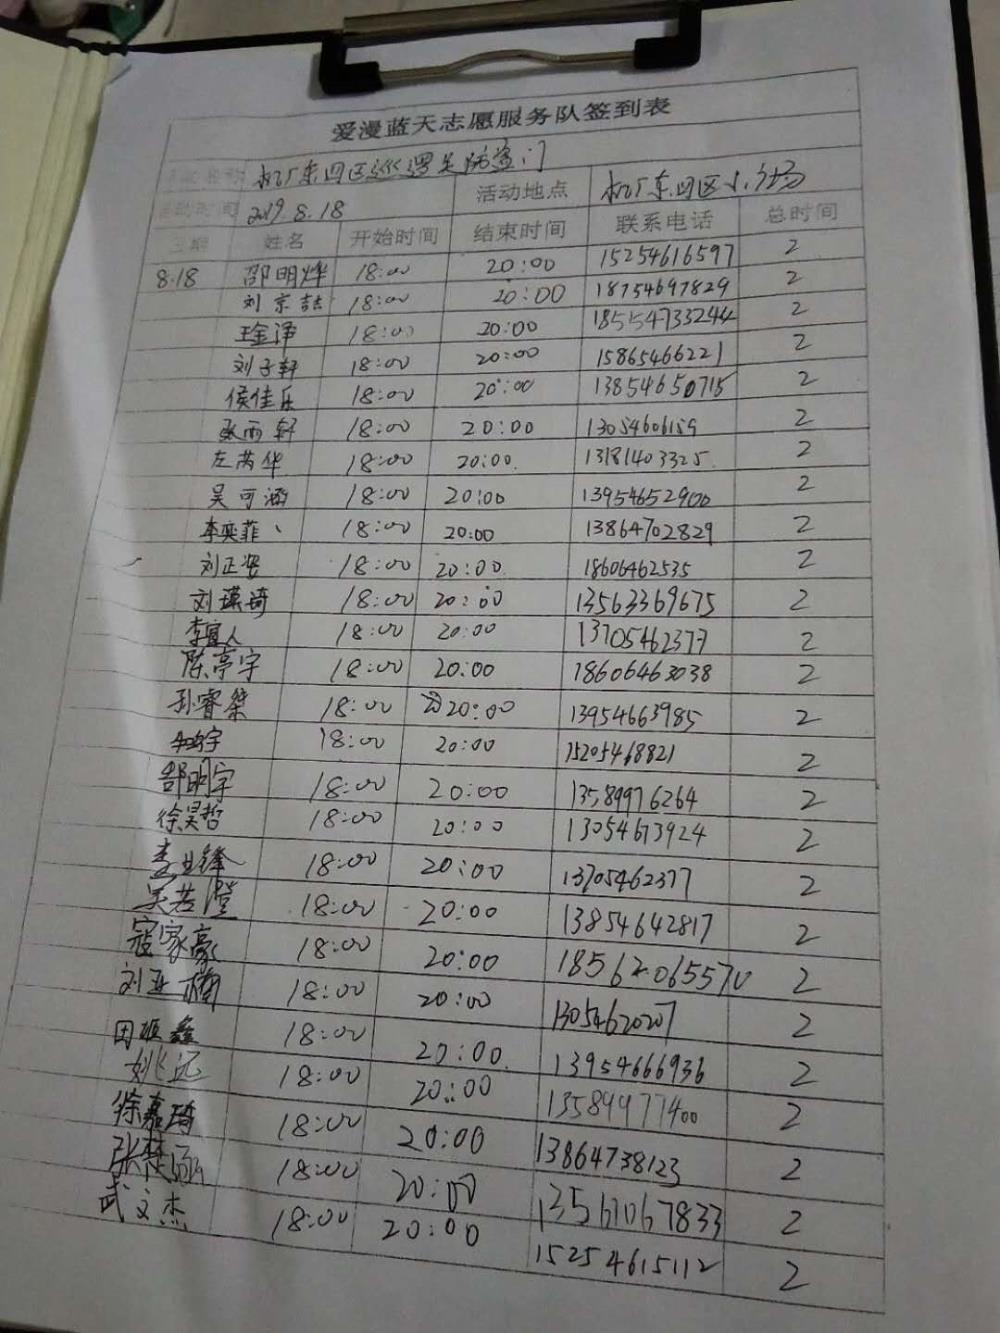 爱漫蓝天志愿服务队签到表
活动名称 机厂东四区巡逻关防盗门
活动时间 2019.8.18 活动地点 机厂东四区小广场
日期 姓名 开始时间 结束时间 联系电话 总时间
8.18 邵明烨 18:00 20:00 15254616597 2
刘京喆 18:00 20:00 18754697829 2
王金诤 18:00 20:00 18554733244 2
刘子轩 18:00 20:00 15865466221 2
侯佳乐 18:00 20:00 13854650715 2
张雨轩 18:00 20:00 13054606159 2
左芮华 18:00 20:00 13181403325 2
吴可涵 18:00 20:00 13954652900 2
李奕菲 18:00 20:00 13864702829 2
刘正 18:00 20:00 18606462535 2
刘瑛琦 18:00 20:00 13563369675 2
李宜人 18:00 20:00 13705462377 2
陈亭宇 18:00 20:00 18606463038 2
孙睿桀 18:00 20:00 13954663985 2
18:00 20:00 15205468821 2
郜明宇 18:00 20:00 13589976264 2
徐昊哲 18:00 20:00 13054673924 2
李业锋 18:00 20:00 13705462377 2
吴若滢 18:00 20:00 13854642817 2
寇家豪 18:00 20:00 18562065570 2
刘亚楠 18:00 20:00 13054620207 2
田 鑫 18:00 20:00 13954666936 2
姚远 18:00 20:00 13589977400 2
徐嘉琦 18:00 20:00 13864738123 2
张楚涵 18:00 20:00 13561067833 2
武文杰 18:00 20:00 15254615112 2